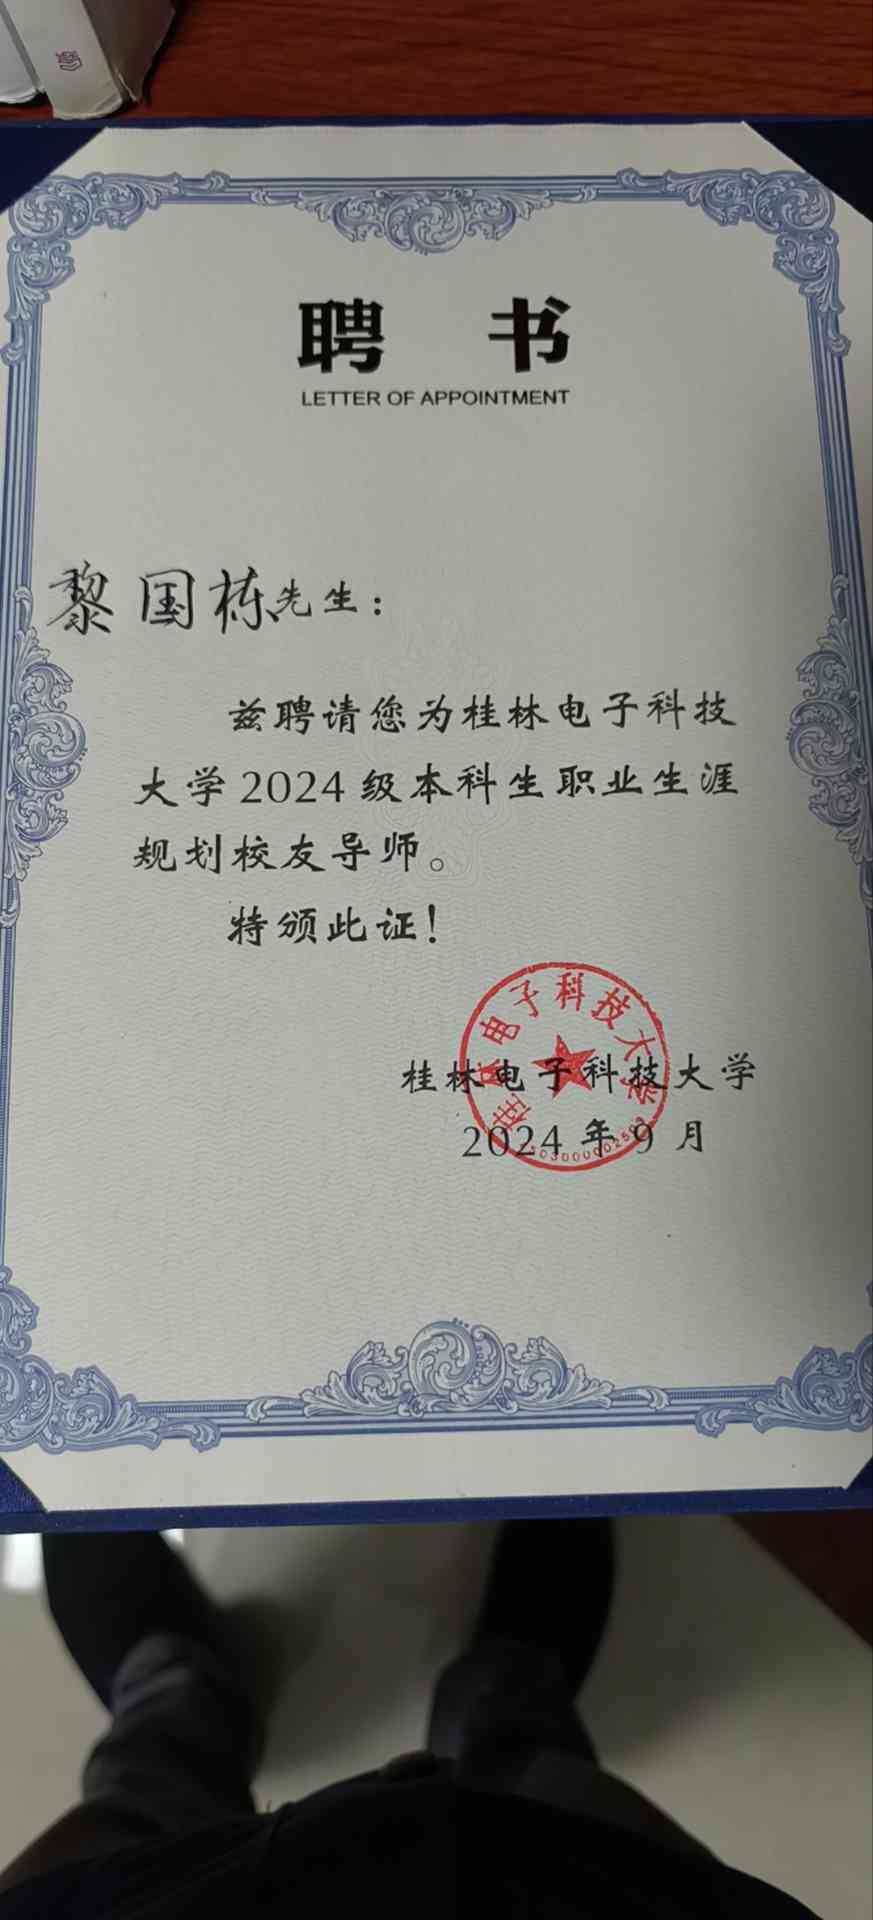 聘 书
LETTER OF APPOINTMENT
黎国栋先生：
兹聘请您为桂林电子科技
大学2024级本科生职业生涯
规划校友导师。
特颁此证！
桂林电子科技大学
桂林电子科技大学
2024年9月